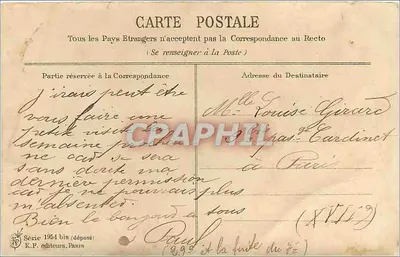 CARTE POSTALE
Tous les Pays Etrangers n'acceptent pas la Correspondance au Recto
(Se renseigner à la Poste)
Partie réservée à la Correspondance
Adresse du Destinataire
j'irais peut être
vous faire une
petite visite
semaine
ne car se sera
sans doute ma
dernière permission
car je ne pourrais plus
m'absenter.
Bien le bonjour à tous
Paul
Melle Louise Girard
Cardinet
à Paris
(XVIIe)
CPAPHIL
Série 1954 bis (déposé)
K.F. éditeurs, Paris
et la fuite du